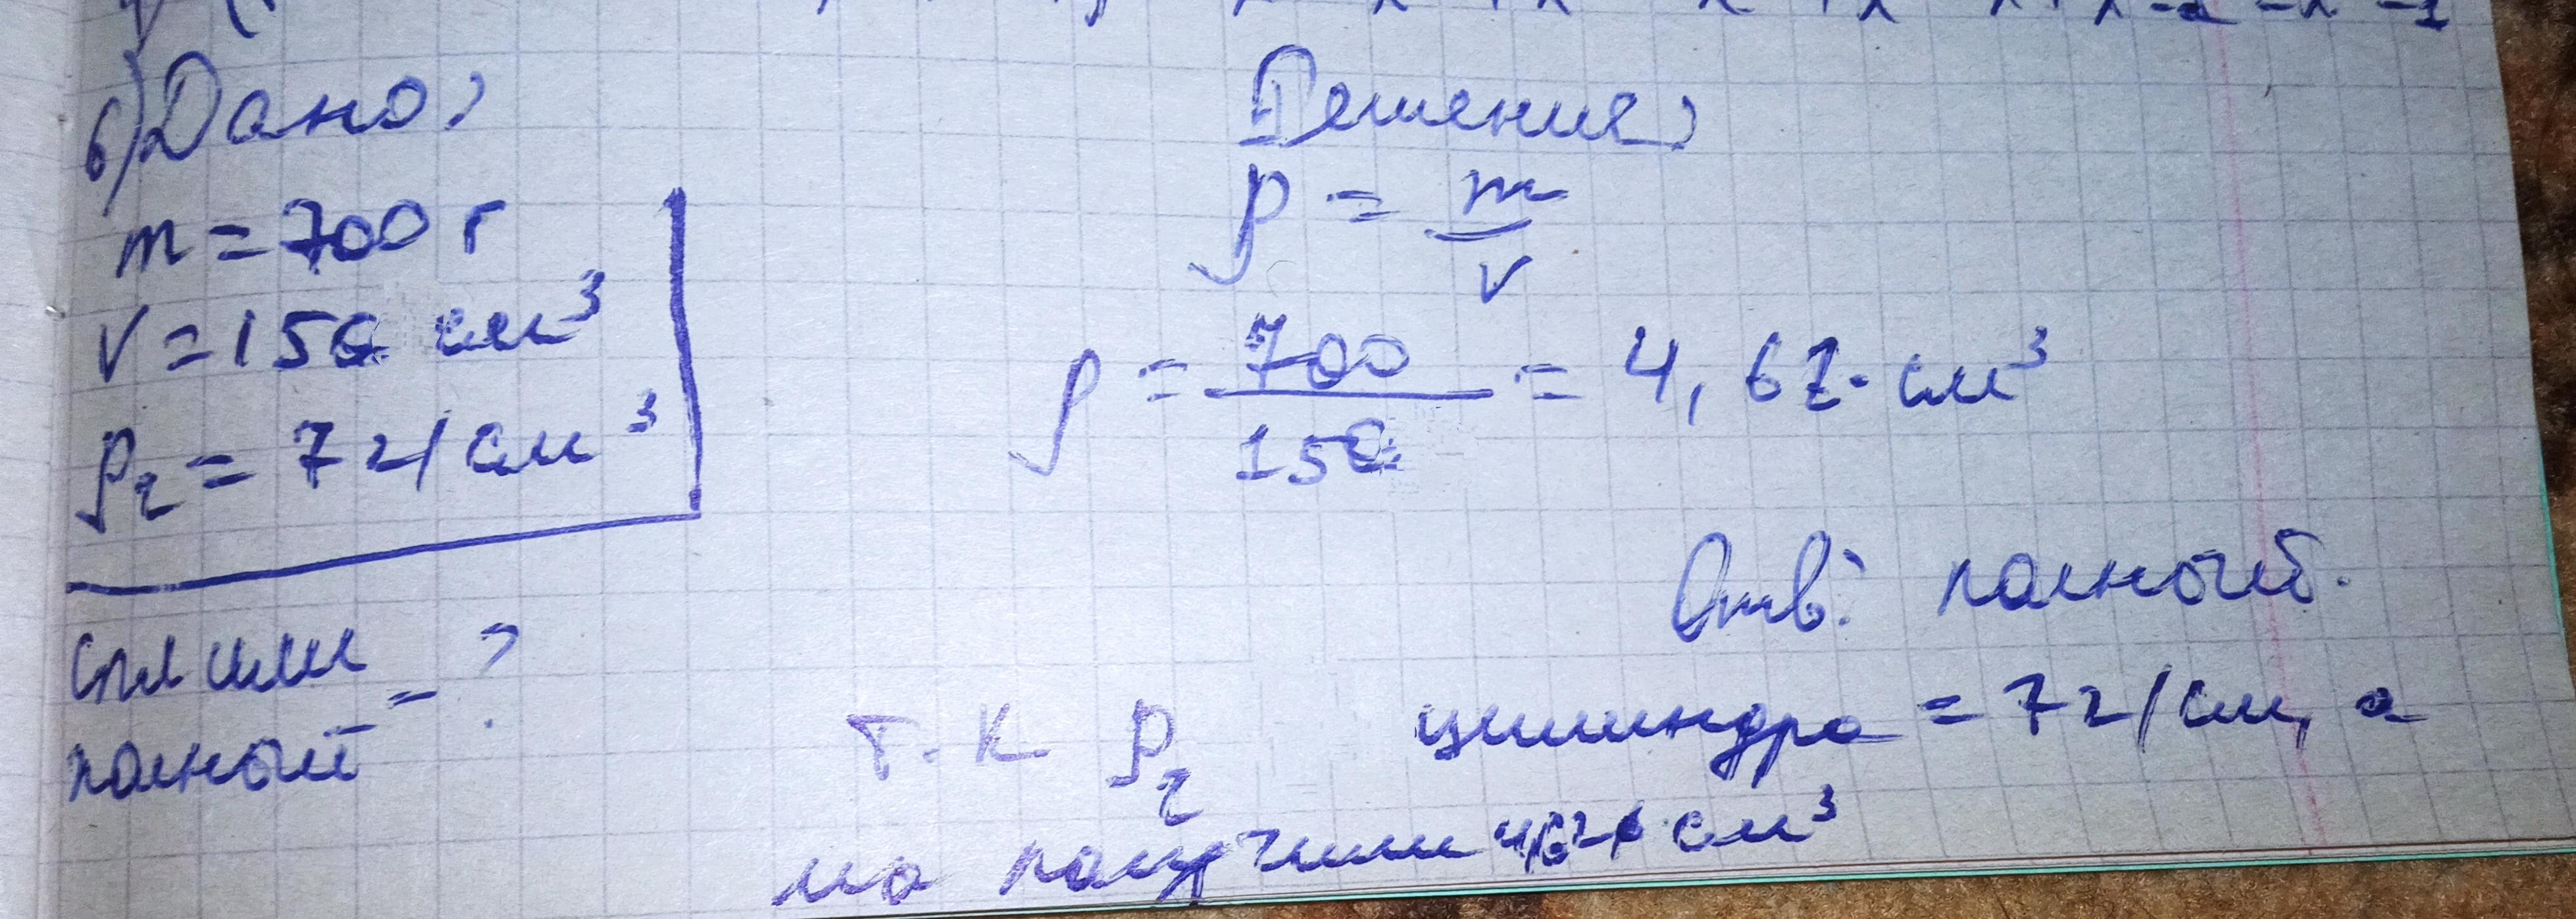 6) Дано:
m = 700 г
V = 150 см³
ρ₂ = 7 г/см³
спл или
полный - ?
Решение:
ρ = m/V
ρ = 700/150 = 4,6 г · см³
Отв: полный.
Т. К ρ₂ цилиндра = 7 г/см, а
мо получили 4,6 г/ см³